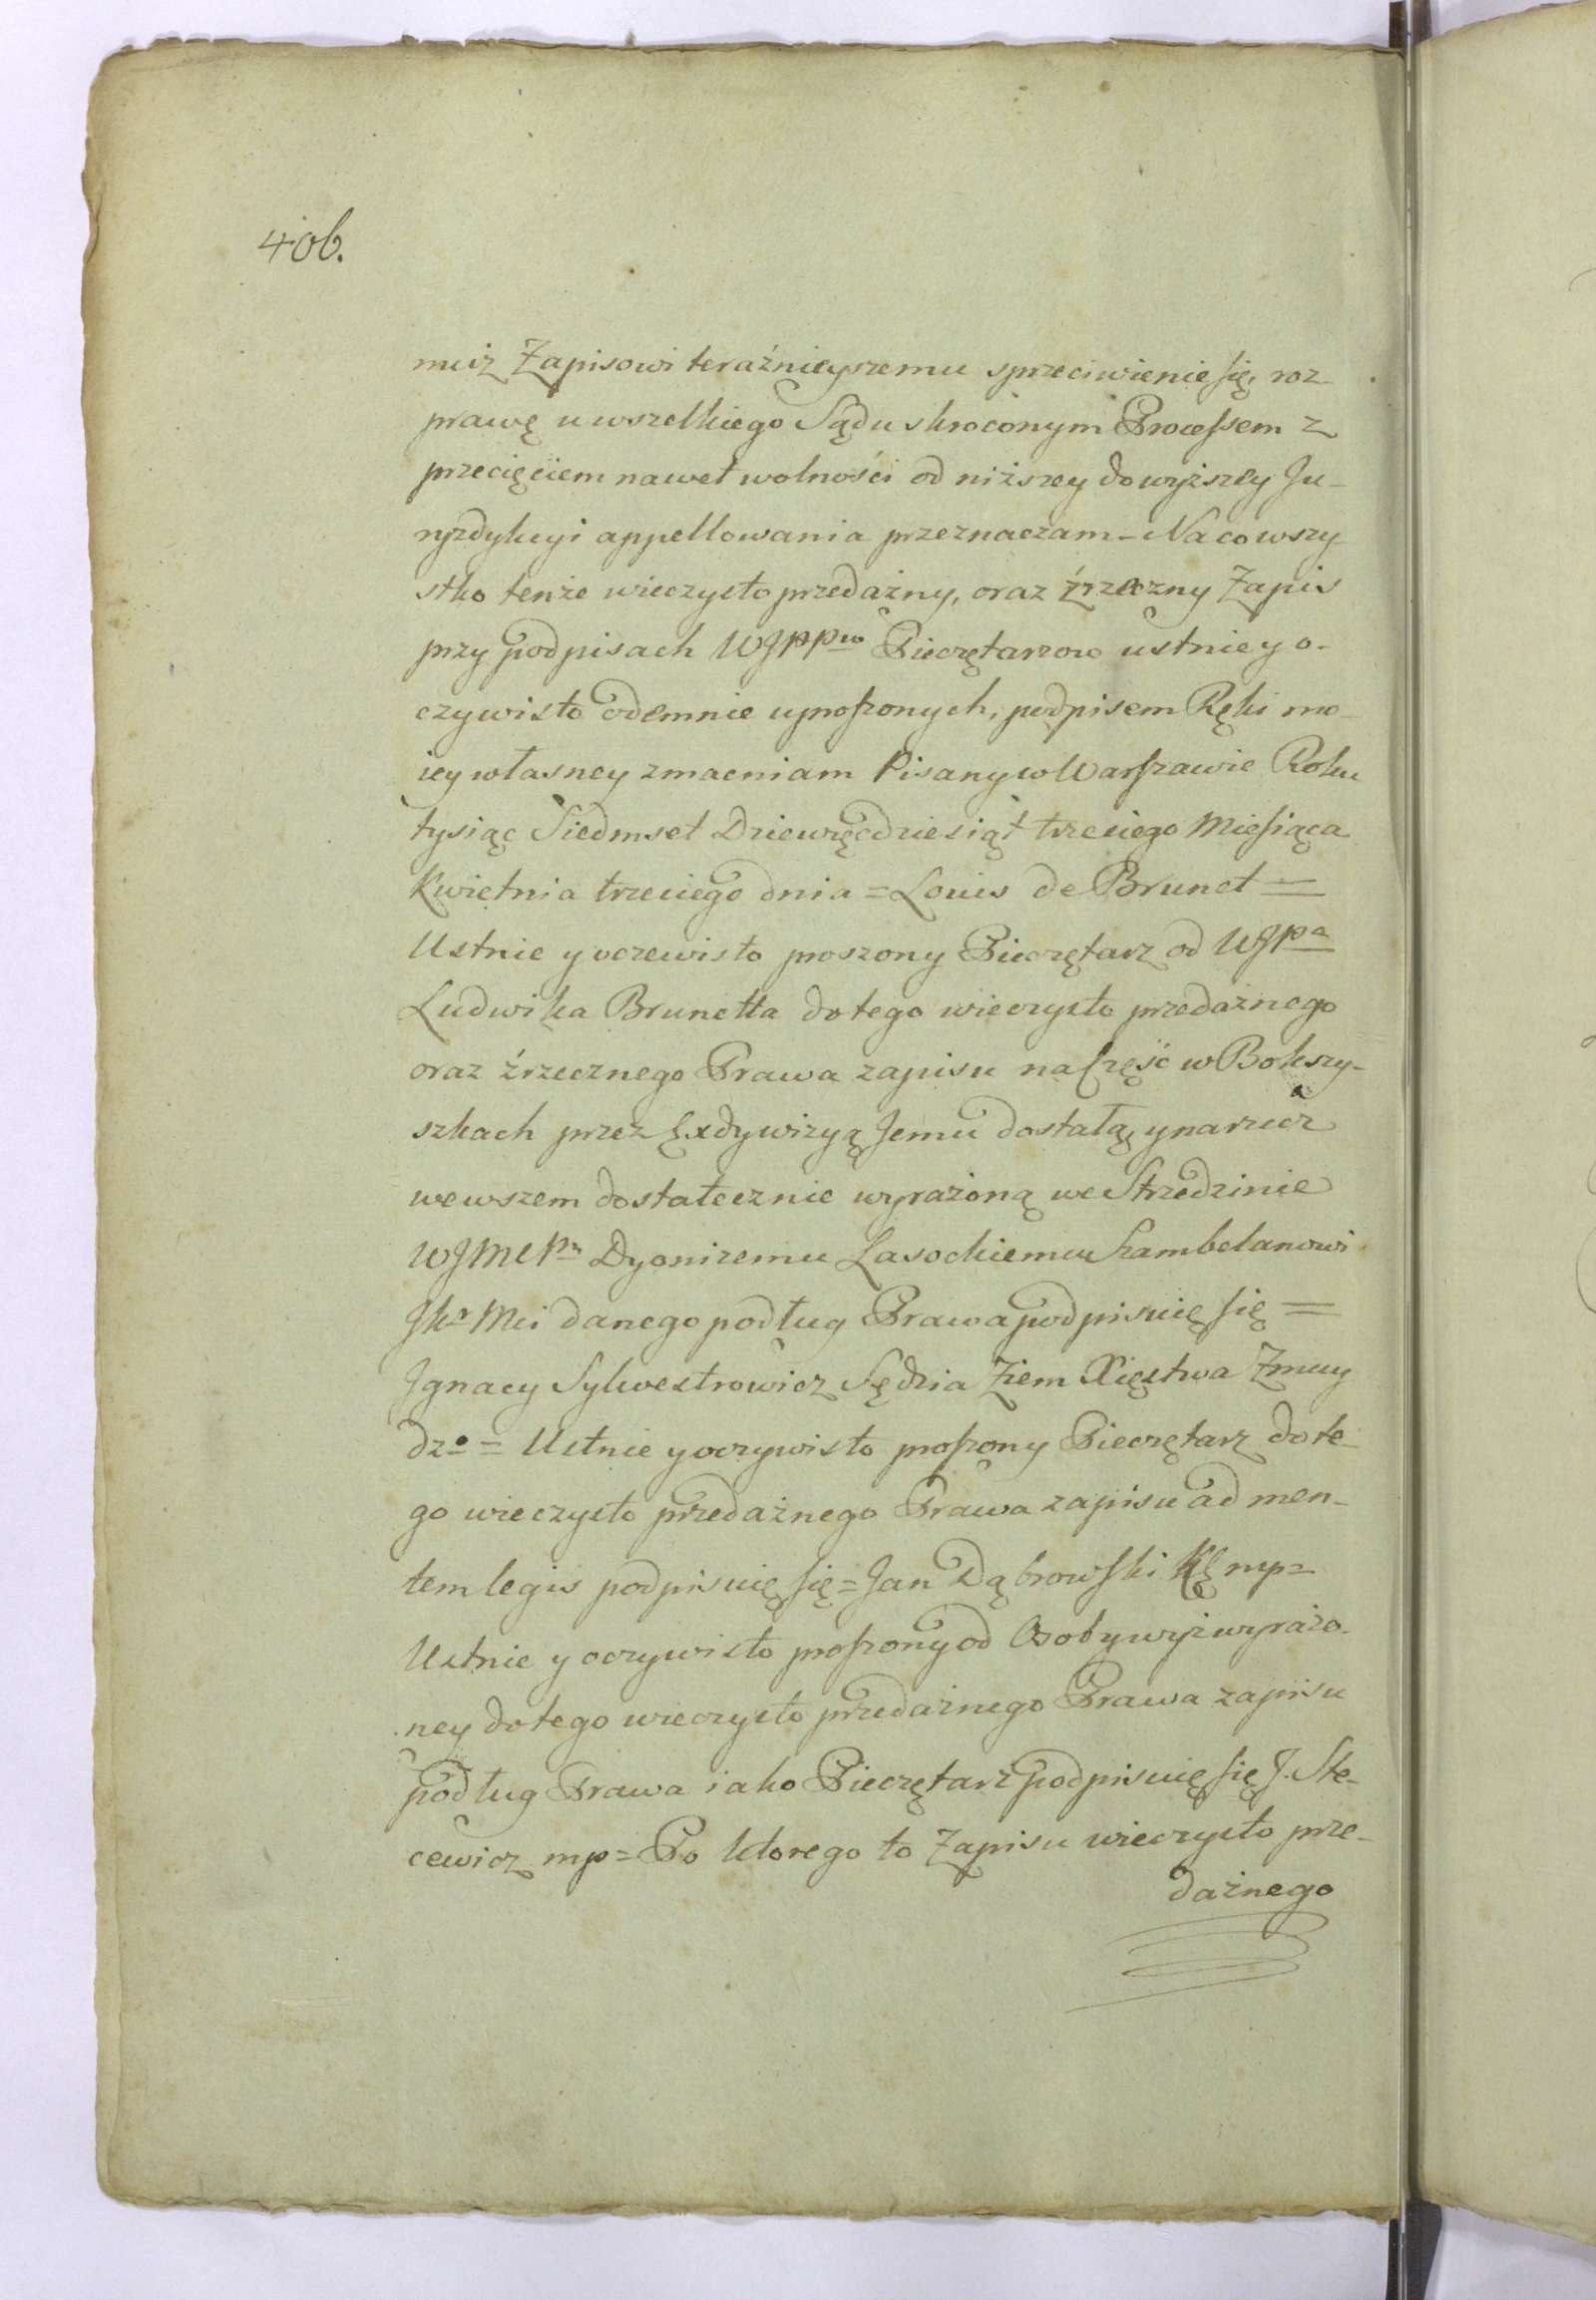 40b.
muiż Zapisowi teraźnieyszemu sprzeciwienie się, roz-
prawę u wszelkiego Sądu skroconym Processem z
przecięciem nawet wolności od niższey do wyższey Ju-
ryzdykcyi appellowania przeznaczam – Na co wszy-
stko tenże wieczysto przedażny, oraz źrzeczny Zapis
przy podpisach WJPPw Pieczętarzow ustnie y o-
czywisto odemnie uproszonych, podpisem Ręki mo-
iey własney zmacniam Pisany w Warszawie Roku
tysiąc Siedmset Dziewięćdziesiąt trzeciego Miesiąca
Kwietnia trzeciego dnia = Louis de Brunet =
Ustnie y oczewisto proszony Pieczętarz od WJPa
Ludwika Brunetta do tego wieczysto przedażnego
oraz źrzecznego Prawa zapisu na Część w Bokszy-
szkach przez Exdywizyą Jemu dostałą, y narzecz
wewszem dostatecznie wyrażoną we Strzedzinie
WJMCPn Dyonizemu Lasockiemu Szambelanowi
JKr Mci danego podług Prawa podpisuię się =
Ignacy Sylwestrowicz Sędzia Ziem Xięstwa Zmuy
dzo = Ustnie y oczywisto proszony Pieczętarz do te-
go wieczysto przedażnego Prawa zapisu ad men-
tem legis podpisuię się = Jan Dąbrowski mp =
Ustnie y oczywisto proszony od Osoby wyż wyrażo-
ney do tego wieczysto przedażnego Prawa zapisu
podług Prawa iako Pieczętarz podpisuię się J. Ste-
cewicz mp = Po ktorego to Zapisu wieczysto prze-
dażnego